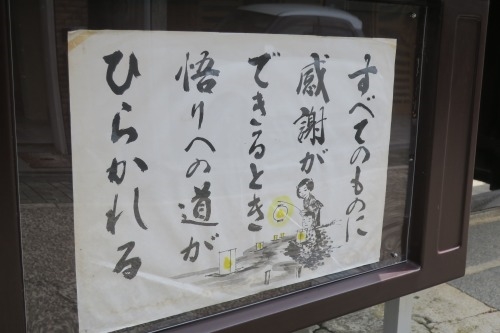 すべてのものに
感謝が
できるとき
悟りへの道が
ひらかれる